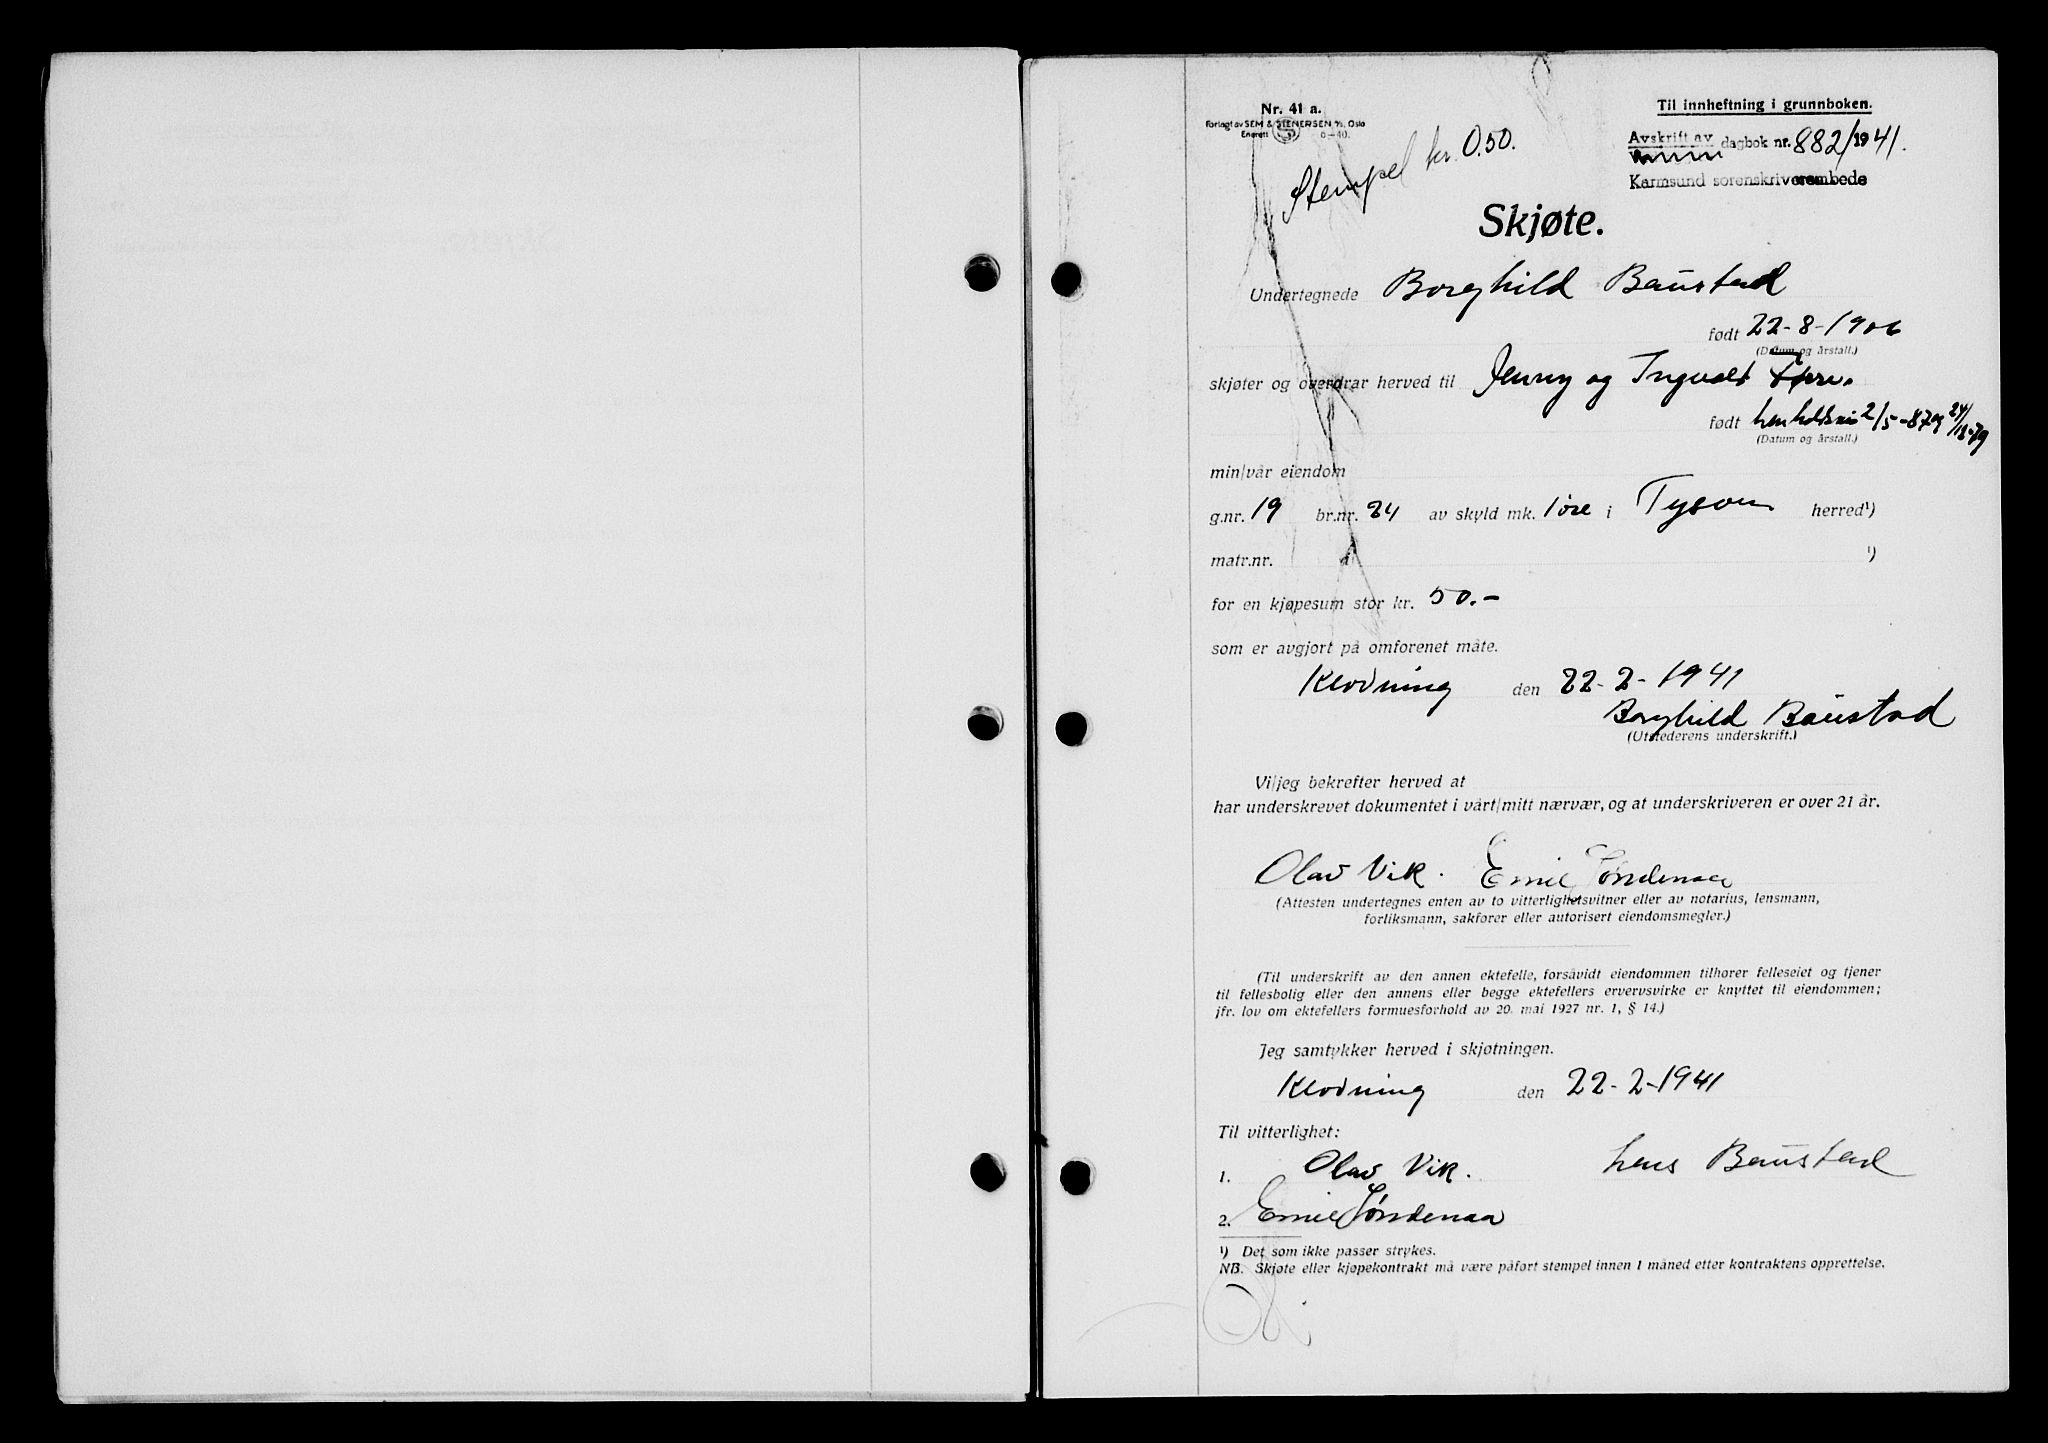 Nr. 41 a.
Forlagt av SEM & STENERSEN A/S, Oslo
Enerett 6-40.
Til innheftning i grunnboken.
Avskrift av dagbok nr. 882/1941.
Karmsund sorenskriverembede
Stempel kr. 0.50.
Skjøte.
Undertegnede Borghild Baustad
født 22-8-1906
(Datum og årstall.)
skjøter og overdrar herved til Jenny og Ingvald
født henholdsvis 2/5-87 og 24/12-79
(Datum og årstall.)
min/vår eiendom
g.nr. 19 br.nr. 24 av skyld mk. 1 øre i Tysvær herred¹)
matr.nr. ¹)
for en kjøpesum stor kr. 50.-
som er avgjort på omforenet måte.
den 22-2-1941
Borghild Baustad
(Utstederens underskrift.)
Vi/jeg bekrefter herved at
har underskrevet dokumentet i vårt/mitt nærvær, og at underskriveren er over 21 år.
Olav Vik. Emil Søndenaa
(Attesten undertegnes enten av to vitterlighetsvitner eller av notarius, lensmann,
forliksmann, sakfører eller autorisert eiendomsmegler.)
(Til underskrift av den annen ektefelle, forsåvidt eiendommen tilhører felleseiet og tjener
til fellesbolig eller den annens eller begge ektefellers ervervsvirke er knyttet til eiendommen;
jfr. lov om ektefellers formuesforhold av 20. mai 1927 nr. 1, § 14.)
Jeg samtykker herved i skjøtningen.
den 22-2-1941
Til vitterlighet:
1. Olav Vik. Lars Baustad
2. Emil Søndenaa
¹) Det som ikke passer strykes.
NB. Skjøte eller kjøpekontrakt må være påført stempel innen 1 måned etter kontraktens opprettelse.